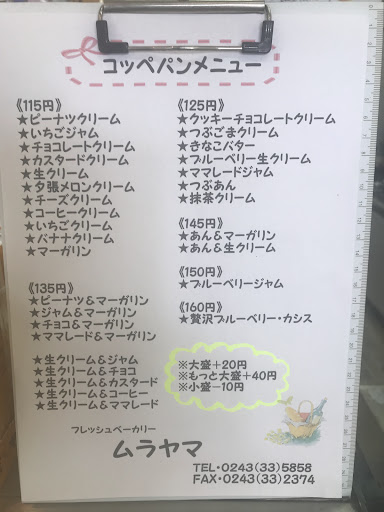 コッペパンメニュー
《115円》
★ピーナツクリーム
★いちごジャム
★チョコレートクリーム
★カスタードクリーム
★生クリーム
★夕張メロンクリーム
★チーズクリーム
★コーヒークリーム
★いちごクリーム
★バナナクリーム
★マーガリン
《135円》
★ピーナツ&マーガリン
★ジャム&マーガリン
★チョコ&マーガリン
★ママレード&マーガリン
★生クリーム&ジャム
★生クリーム&チョコ
★生クリーム&カスタード
★生クリーム&コーヒー
★生クリーム&ママレード
《125円》
★クッキーチョコレートクリーム
★つぶごまクリーム
★きなこバター
★ブルーベリー生クリーム
★ママレードジャム
★つぶあん
★抹茶クリーム
《145円》
★あん&マーガリン
★あん&生クリーム
《150円》
★ブルーベリージャム
《160円》
★贅沢ブルーベリー・カシス
※大盛+20円
※もっと大盛+40円
※小盛-10円
フレッシュベーカリー
ムラヤマ
TEL・0243(33)5858
FAX・0243(33)2374